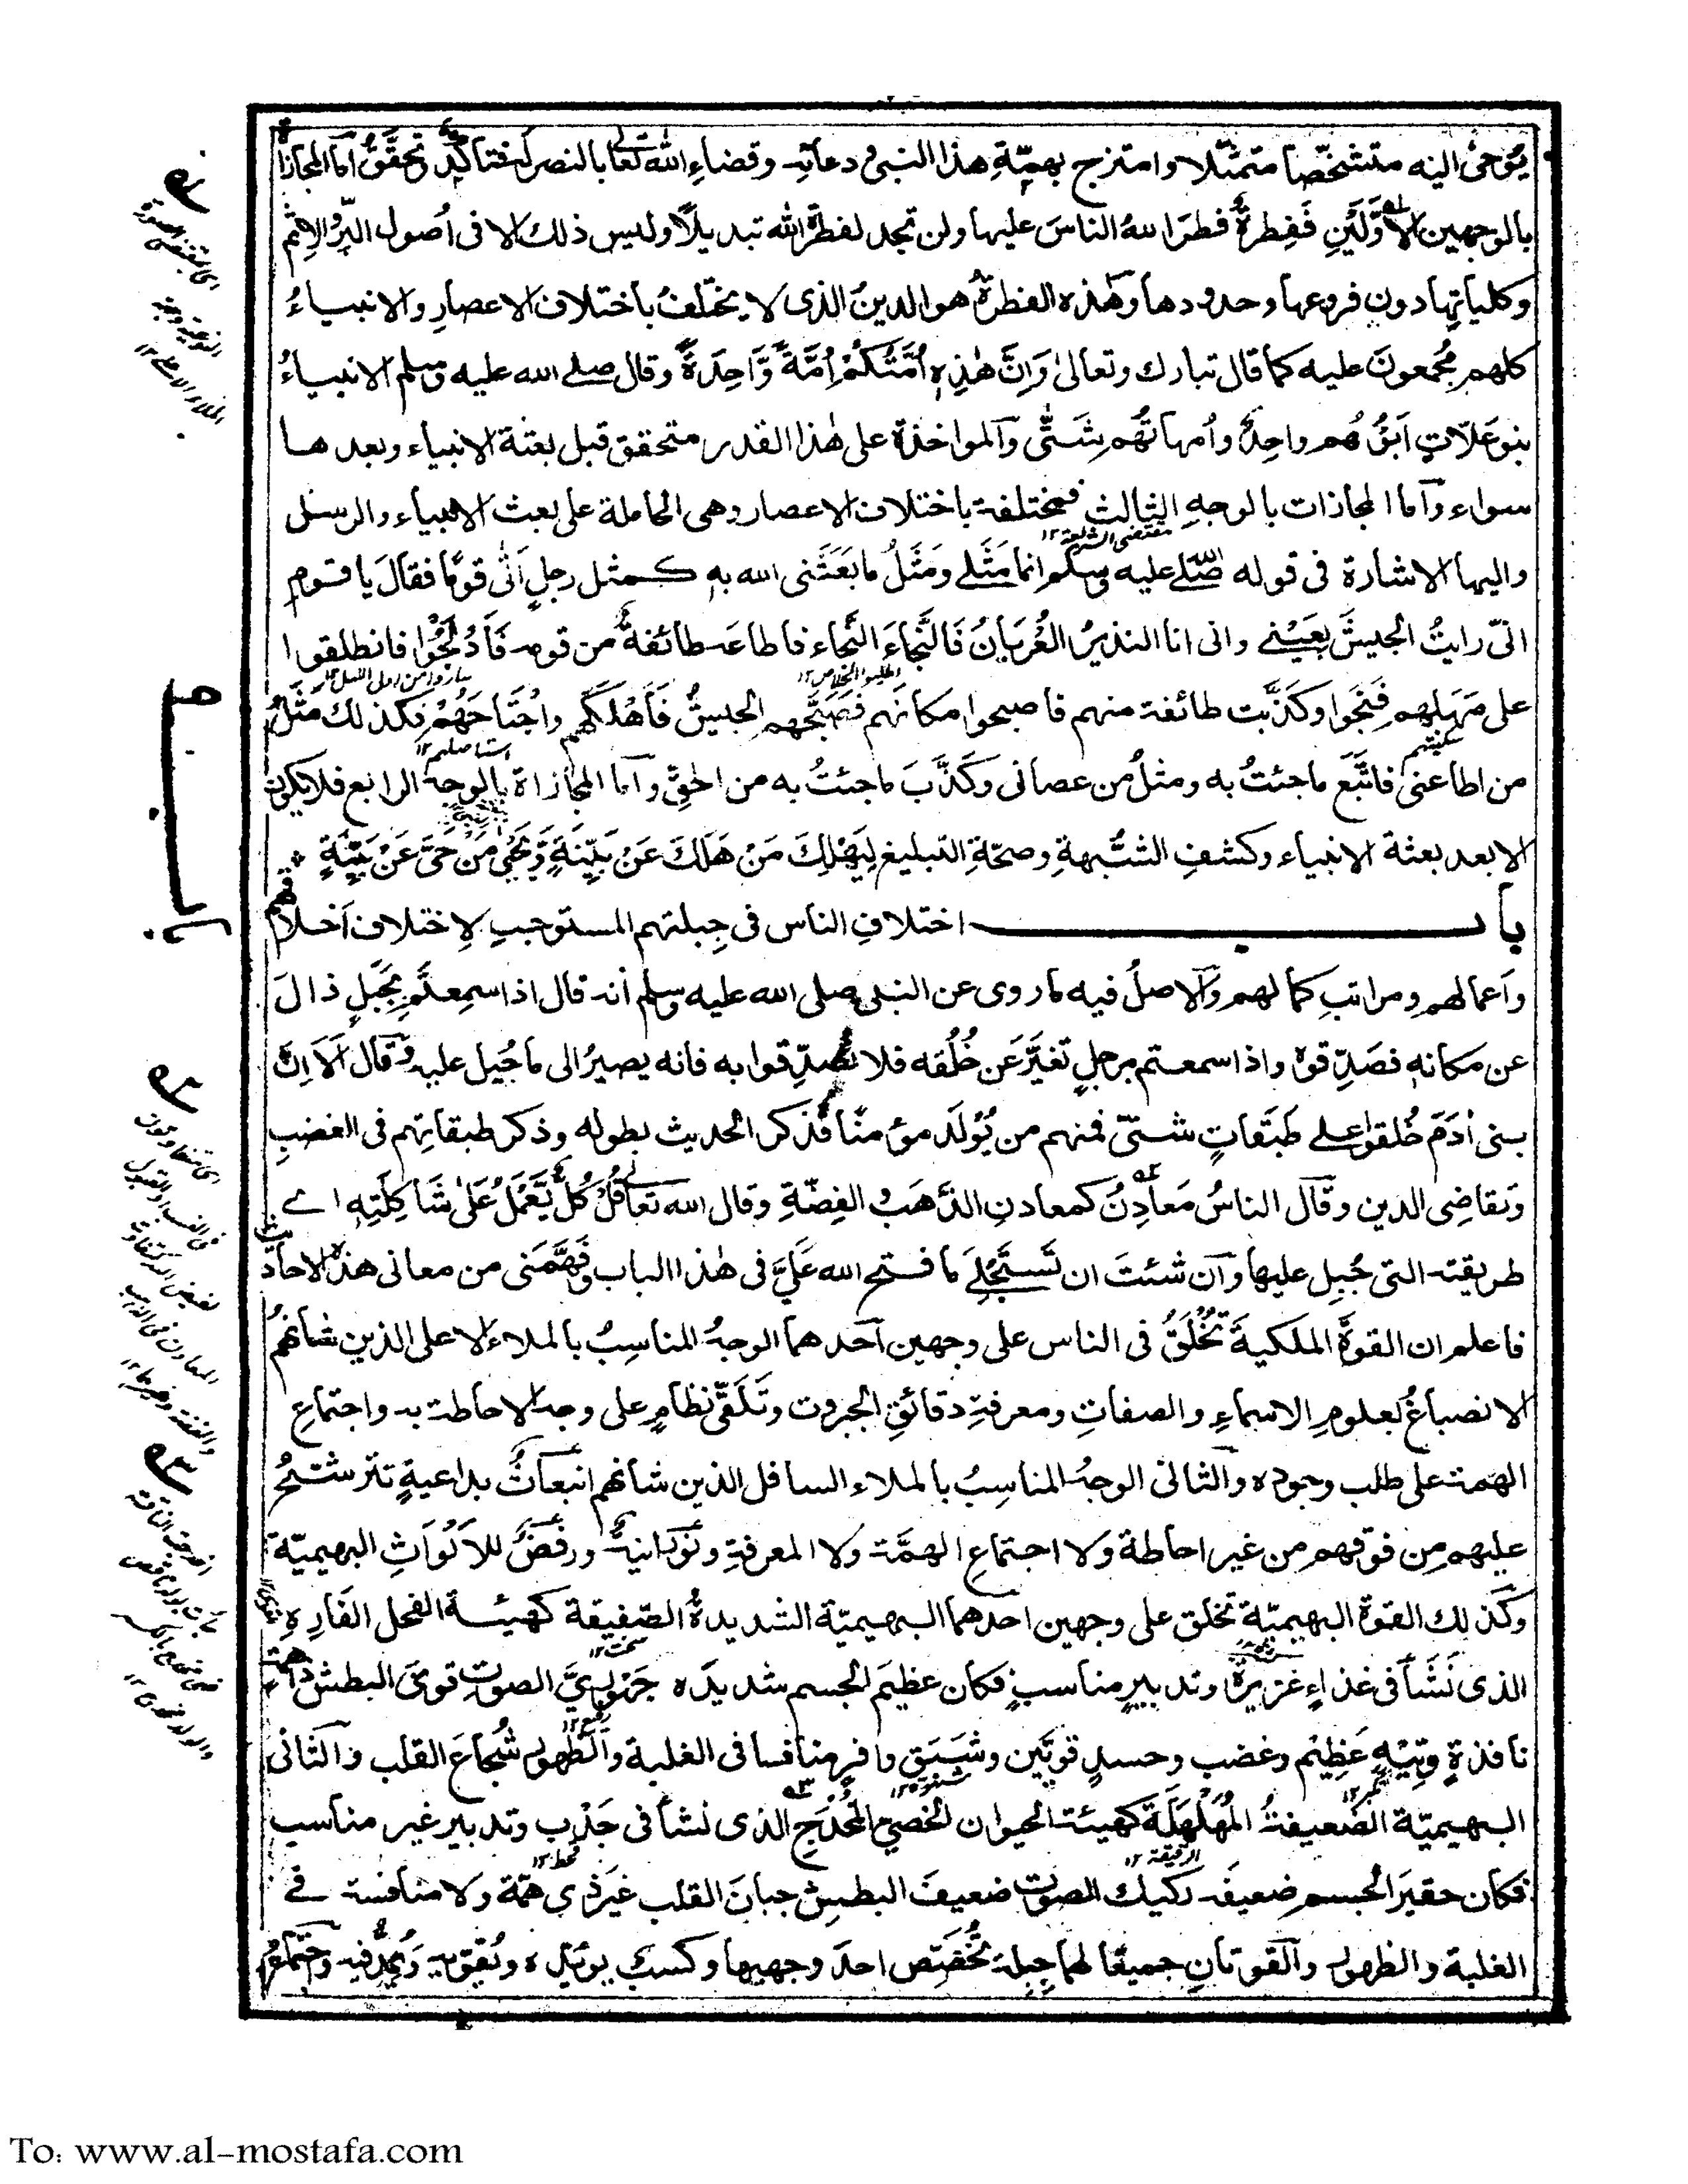 يُوحىٰ اليه متشخّصا متمثّلا وامتزج بهمّةِ هذا النبى ودعائه وقضاءِ الله تعالىٰ بالنصر له فتأكّد وتحقّق أمّا المجازاة
بالوجهين الاوّلين ففطرةٌ فطر الله الناسَ عليها ولن تجد لفطرة الله تبديلاً وليس ذلك الا فى أصول البِرّ والاثم
وكلياتها دون فروعها وحدودها وهذه الفطرةُ هو الدينُ الذى لا يختلفُ باختلاف الاعصارِ والانبياءُ
كلهم مُجمعونَ عليه كما قال تبارك وتعالىٰ وَاِنَّ هٰذِهٖ اُمَّتُكُمْ اُمَّةً وَّاحِدَةً وقال صلى الله عليه وسلم الانبياءُ
بنو عَلّاتٍ اَبُوْهُم واحِدٌ وأمهاتُهُم شِتَّى وآلمواخذة على هٰذا القدر متحقق قبل بعثة الانبياء وبعدها
سواء وآما المجازات بالوجهِ الثالث فمختلفة باختلاف الاعصار وهى الحاملة على بعث الانبياء والرسل
مقتضى الشريعة ١٢
واليها الاشارة فى قوله صلّى الله عليه وسلم انما مَثَلى ومَثَلُ ما بَعَثَنى الله به كمثل رجلٍ اَتٰى قومًا فقالَ يا قومِ
انّى رايتُ الجيشَ بعَيْنَى وانى انا النذيرُ العُرْيَانُ فَالنَّجاءَ النَّجاء فاطاعه طائفةٌ من قومه فَاَدْلَجُوْا فانطلقوا
اطلبوا الخلاص ١٢ ساروا من اول الليل ١٢
على مَهَلِهِم فَنَجَوا وكَذَّبت طائفة منهم فاصبحوا مكانَهم فصَبَّحهم الجيشُ فَاَهْلَكَهم واجْتَاحَهُمْ فكذلك مَثَلُ
سكينتهم استاصلهم ١٢
من اطاعنى فاتَّبَع ماجئتُ به ومثلُ من عصانى وكَذَّبَ ماجئتُ به من الحقِّ وآما المجازاة بالوجه الرابع فلا يكون
الا بعد بعثة الانبياء وكشفِ الشُّبهةِ وصحّةِ التبليغ لِيَهْلِكَ مَنْ هَلَكَ عَنْ بَيِّنَةٍ وَّيَحْيٰى مَنْ حَىَّ عَنْ بَيِّنَةٍ
باب اختلافِ الناس فى جِبلتهم المستوجبِ لاختلاف اَخلاقهم
وأعمالهم ومراتبِ كمالهم وآلاصلُ فيه ماروى عن النبى صلى الله عليه وسلم أنه قال اذا سمعتم بجَبَلٍ ذالَ
عن مكانه فصَدِّقوه واذا سمعتم برجلٍ تغيَّرَ عَن خُلُقه فلا تُصَدِّقوا به فانه يصيرُ الى ما جُبِل عليه وقال اَلاَ اِنَّ
بنى اٰدَمَ خُلقوا على طبَقاتٍ شتّى فمنهم من يُوْلَد مؤمنًا فذكر الحديث بطوله وذكر طبقاتِهم فى الغضبِ
وتقاضِى الدين وقآل الناسُ مَعادِنُ كمعادنِ الذَّهَبِ والفِضّةِ وقال الله تعالى قُلْ كُلٌّ يَّعْمَلُ عَلىٰ شَاكِلَتِهٖ اى
طريقته التى جُبِل عليها وآن شئتَ ان تَسْتَجْلِىَ ما فتح الله عَلَيَّ فى هٰذا الباب وفَهَّمَنى من معانى هذه الاحاديث
فاعلم ان القوةَ الملكيةَ تُخْلَقُ فى الناس على وجهين آحدهما الوجهُ المناسِبُ بالملاء الاعلى الذين شانُهم
الانصباغُ بعلومِ الاسماءِ والصفاتِ ومعرفةِ دقائقِ الجبروت وتَلَقّى نظامٍ على وجه الاحاطة به واجتماعِ
الهمة على طلب وجوده والثانى الوجهُ المناسِبُ بالملاء السافل الذين شانهم انبعاثٌ بداعيةٍ تترشّحُ
عليهم مِن فوقهم من غير احاطة ولا اجتماعِ الهمَّة ولا المعرفةِ ونورانيةٌ ورفضٌ للاَلْوَاثِ البهيميّة
وكذلك القوة البهيميّة تخلق على وجهين احدهما البهيميّة الشديدةُ الصَّفيقة كهيئة الفحل الفَارِهِ
الذى نَشَأَ فى غذاءٍ غزيرة وتدبيرٍ مناسبٍ فكان عظيمَ الجسم شديدَه جَهْوَرِيَّ الصوتِ قوىَّ البطش ذاهمة
سخت ١٢
نافذةٍ وتِيْهٍ عَظِيْم وغضب وحسدٍ قويّين وشَبَقٍ وافرٍ منافسا فى الغلبة والظهور شُجاعَ القلب والثانى
رفيع ١٢ تكبر ١٢ شهوة ١٢
البهيميّة الضعيفةُ المُهَلْهَلَة كهيئة الحيوان الخصىِّ المُخْدَجِ الذى نشأ فى جَدْبٍ وتدبير غير مناسب
الرقيقة ١٢ قحط ١٢
فكان حقيرَ الجسم ضعيفَه ركيك الصوت ضعيفَ البطش جبانَ القلب غيرَ ذى همّة ولا منافسة فى
الغلبة والظهور وآلقوتانِ جميعًا لهما جِبِلة تُخصِّص احدَ وجهيها وكسبٌ يؤيّده ويُقوّيه ويُمِدُّ فيه واجتماعُ
To: www.al-mostafa.com